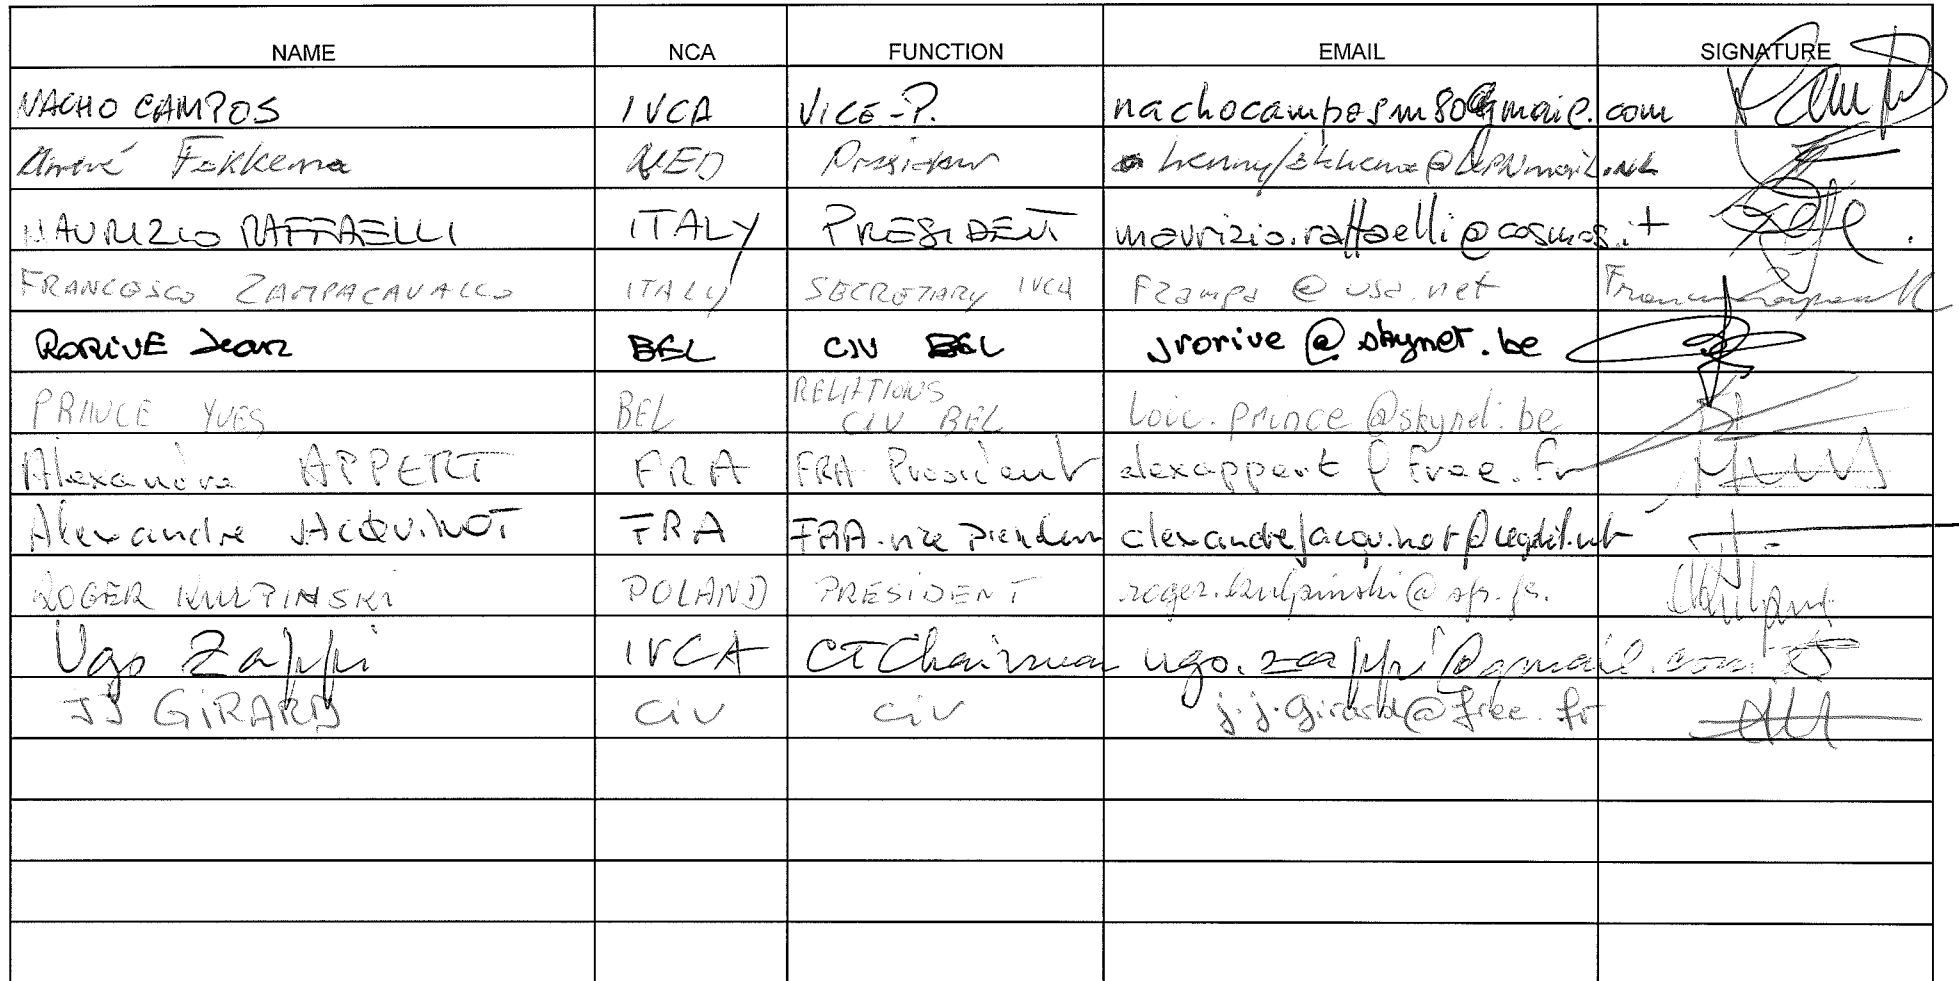 NAME NCA FUNCTION EMAIL SIGNATURE
NACHO CAMPOS IVCA VICE-P. nachocamposm80@gmail.com
André Fekkema NED President
MAURIZIO RAFFAELLI ITALY PRESIDENT maurizio.raffaelli@cosmos.it
FRANCESCO ZAMPACAVALLO ITALY SECRETARY IVCA Fzampa @ usa.net
RORIVE Jean BEL CIV BEL jrorive @ skynet.be
PRINCE YVES BEL RELATIONS CIV BEL loic.prince @skynet.be
Alexandre APPERT FRA FRA President alexappert @ free.fr
Alexandre JACQUINOT FRA FRA vice President
ROGER KULPINSKI POLAND PRESIDENT
Ugo Zappi IVCA CT Chairman ugo.zappi@gmail.com
JJ GIRARD CIV CIV j.j.girard@free.fr